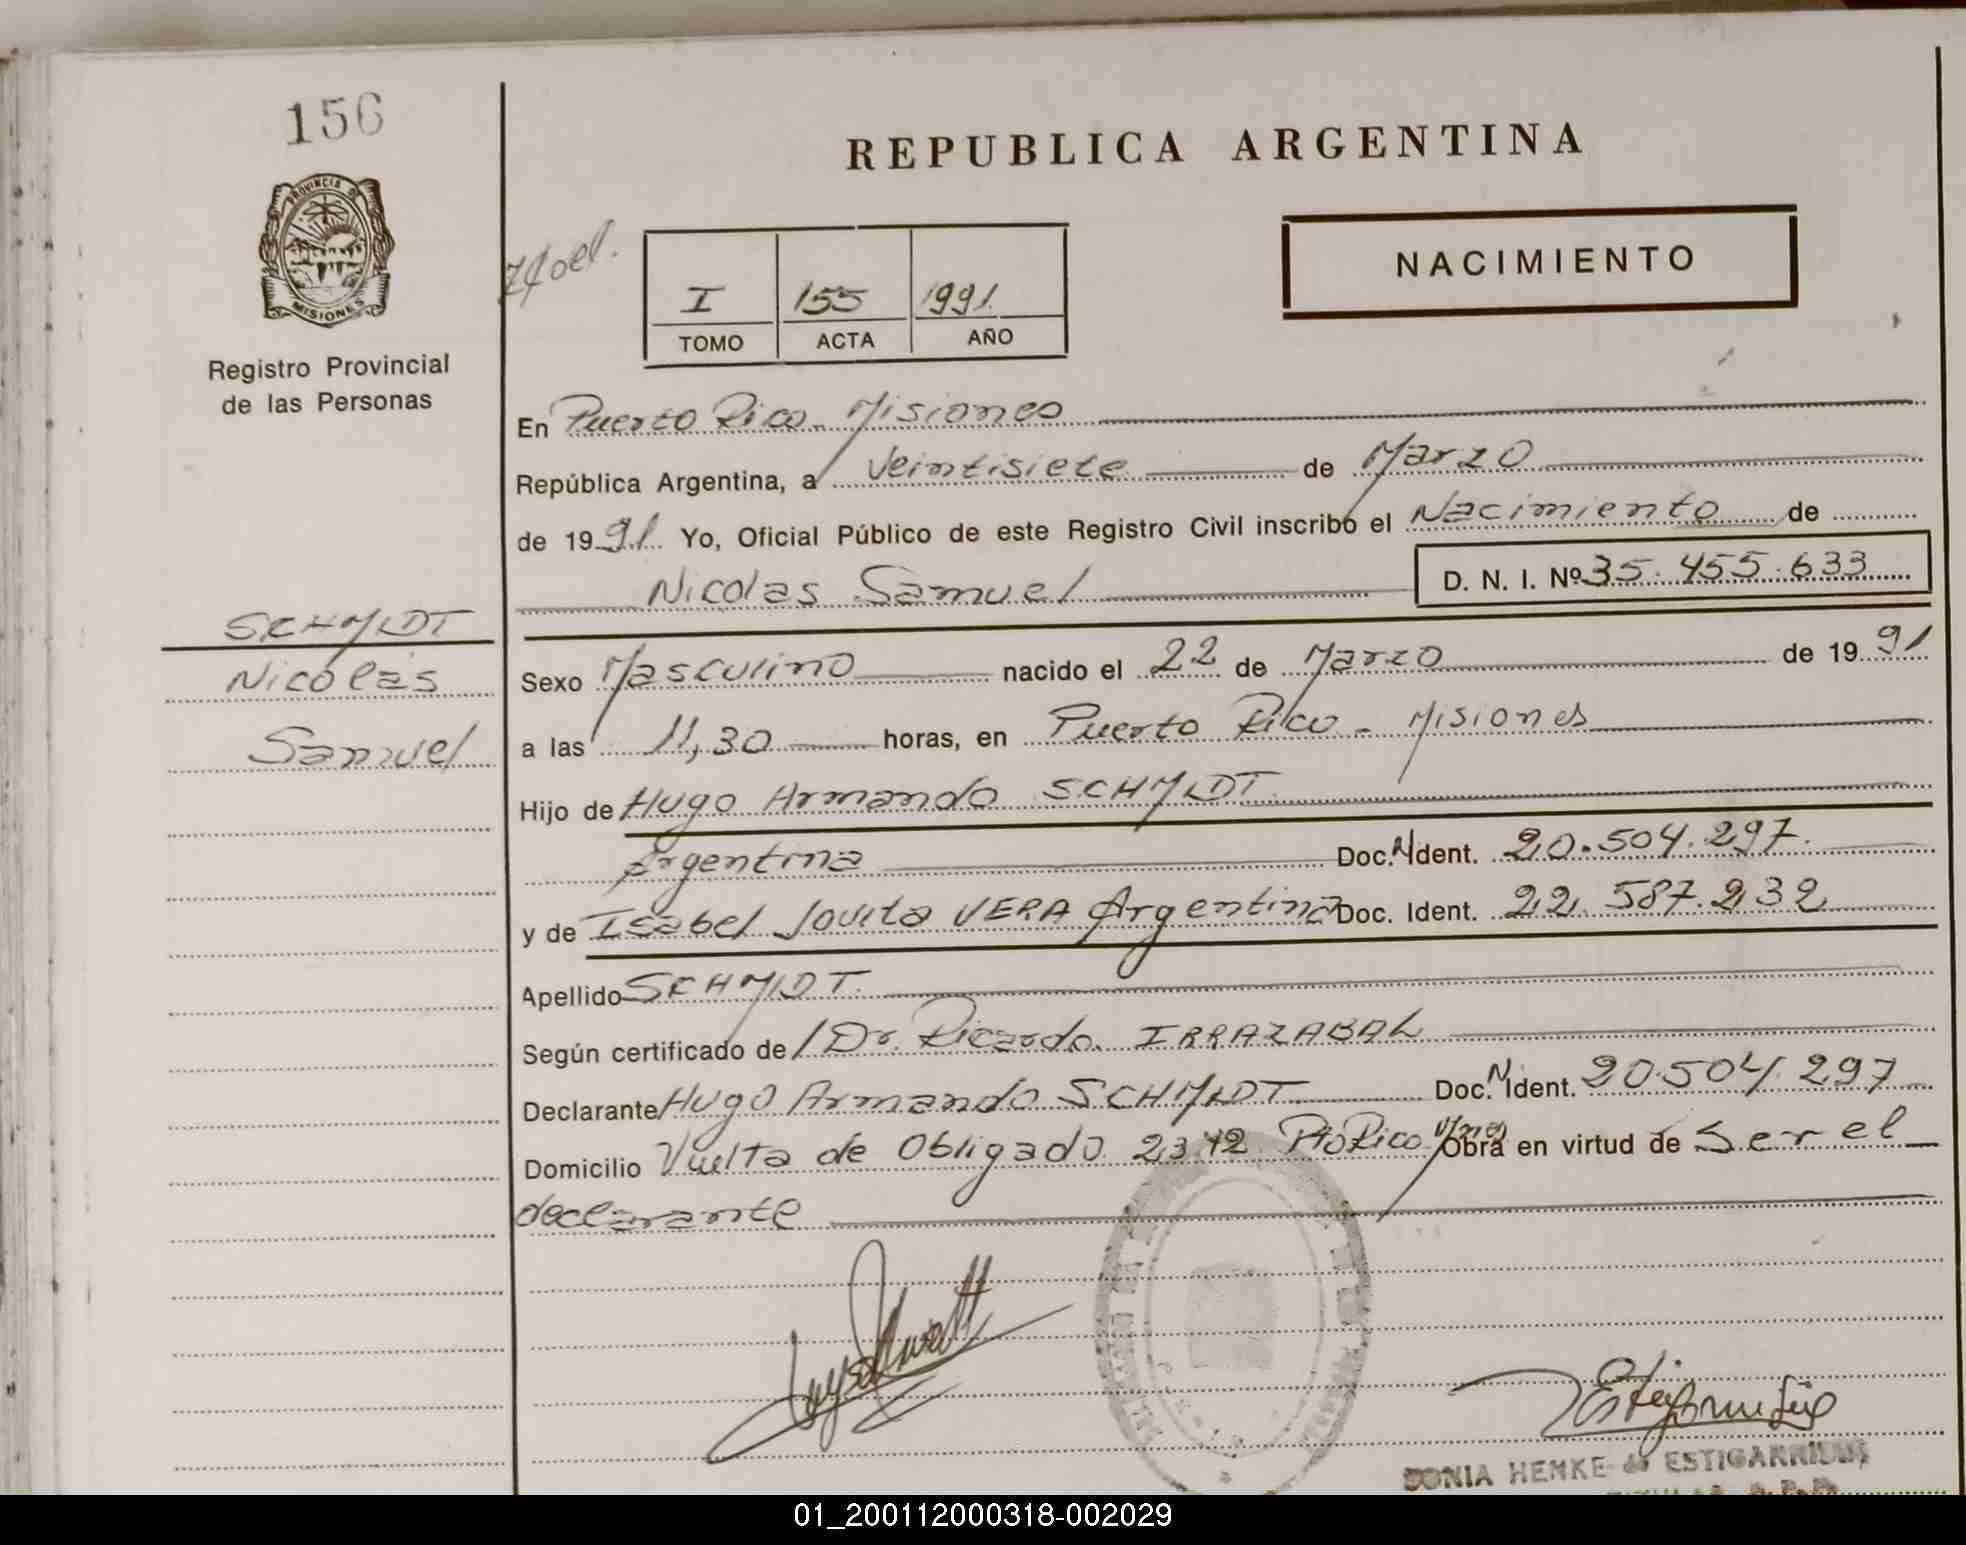 156
REPUBLICA ARGENTINA
PROVINCIA DE
MISIONES
Registro Provincial
de las Personas
I 155 1991
TOMO ACTA AÑO
NACIMIENTO
En Puerto Rico - Misiones
República Argentina, a Veintisiete de Marzo
de 1991 Yo, Oficial Público de este Registro Civil inscribo el Nacimiento de
Nicolas Samuel D. N. I. Nº 35.455.633
SCHMIDT
Nicolás
Samuel
Sexo Masculino nacido el 22 de Marzo de 1991
a las 11,30 horas, en Puerto Rico - Misiones
Hijo de Hugo Armando SCHMIDT
Argentina Doc. N Ident. 20.504.297.
y de Isabel Jovita VERA Argentina Doc. Ident. 22.587.232
Apellido SCHMIDT.
Según certificado de / Dr. Ricardo IRRAZABAL
Declarante Hugo Armando SCHMIDT Doc. N Ident. 20.504.297
Domicilio Vuelta de Obligado 2342 Pto Rico Mnes Obra en virtud de Ser el
declarante
SONIA HENKE de ESTIGARRIBIA
01_200112000318-002029